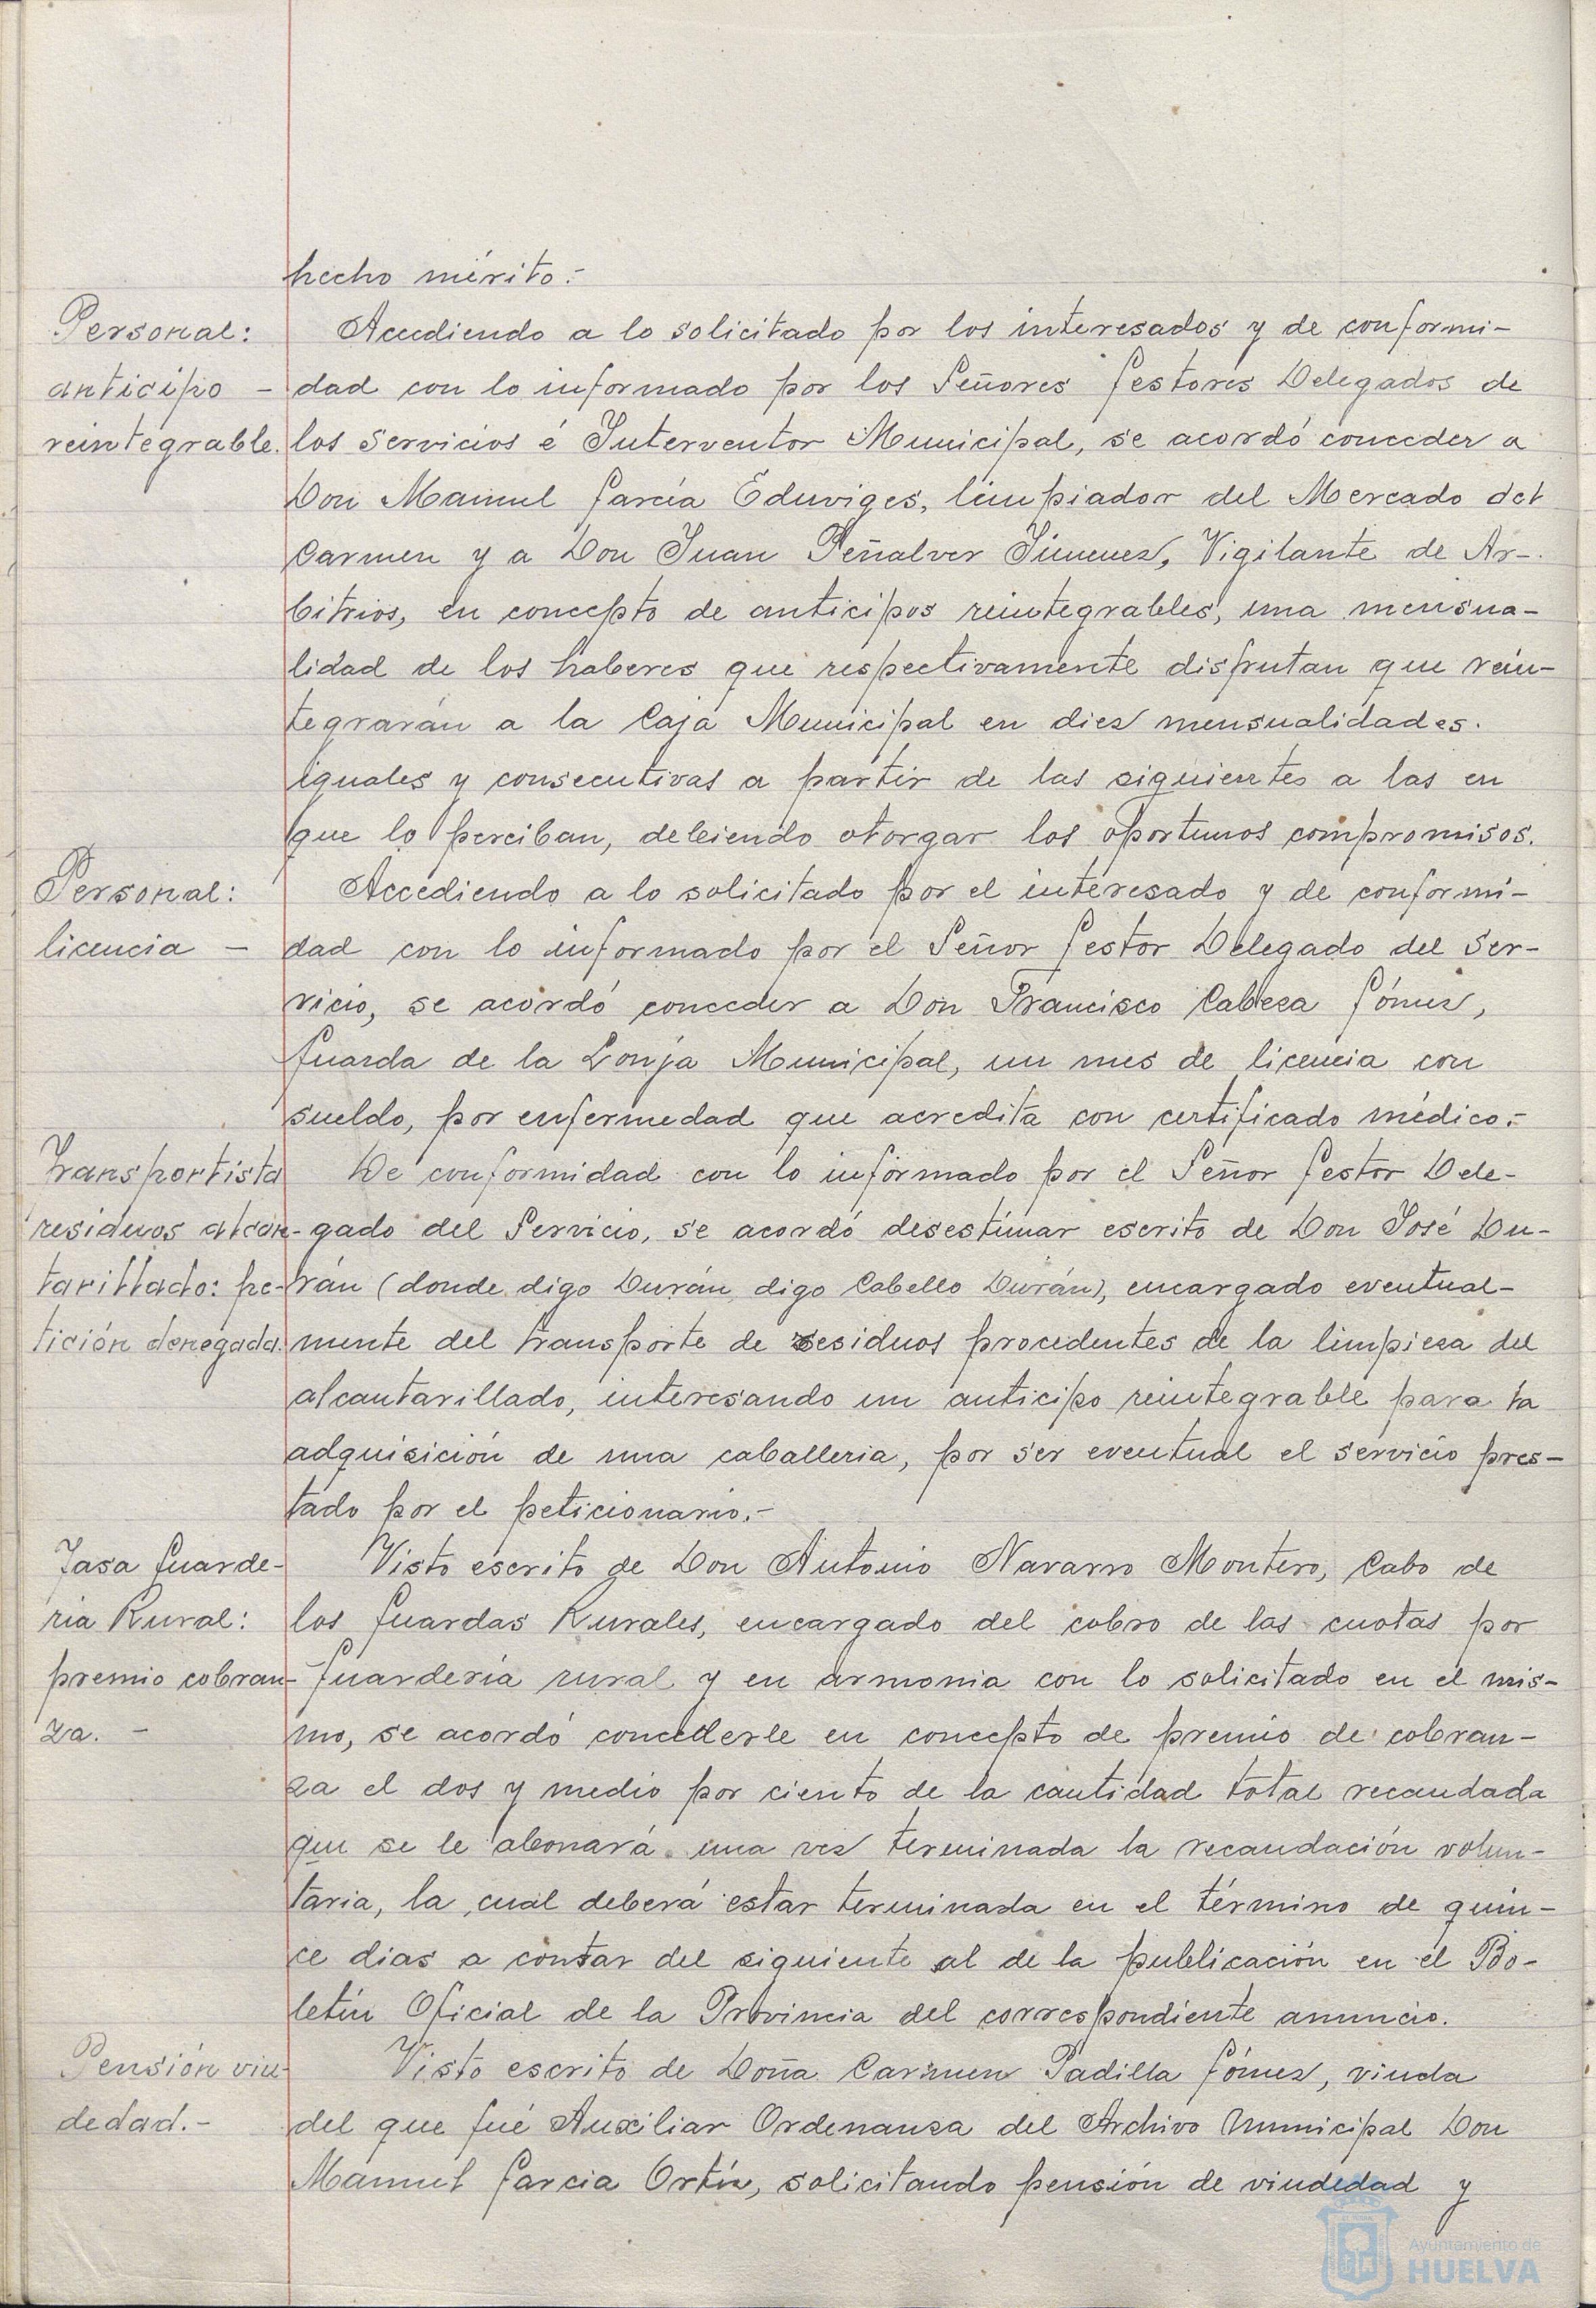 hecho mérito.-
Personal:
anticipo -
reintegrable.
Accediendo a lo solicitado por los interesados y de conformi-
dad con lo informado por los Señores Gestores Delegados de
los servicios é Interventor Municipal, se acordó conceder a
Don Manuel García Eduviges, limpiador del Mercado del
Carmen y a Don Juan Peñalver Jimenez, Vigilante de Ar-
bitrios, en concepto de anticipos reintegrables, una mensua-
lidad de los haberes que respectivamente disfrutan que rein-
tegrarán a la Caja Municipal en diez mensualidades
iguales y consecutivas a partir de las siguientes a las en
que lo perciban, debiendo otorgar los oportunos compromisos.
Personal:
licencia -
Accediendo a lo solicitado por el interesado y de conformi-
dad con lo informado por el Señor Gestor Delegado del Ser-
vicio, se acordó conceder a Don Francisco Cabeza Gómez,
Guarda de la Lonja Municipal, un mes de licencia con
sueldo, por enfermedad que acredita con certificado médico.-
Transportista
residuos alcan-
tarillado: pe-
tición denegada.
De conformidad con lo informado por el Señor Gestor Dele-
gado del Servicio, se acordó desestimar escrito de Don José Du-
rán (donde digo Durán digo Cabello Durán), encargado eventual-
mente del transporte de residuos procedentes de la limpieza del
alcantarillado, interesando un anticipo reintegrable para la
adquisición de una caballeria, por ser eventual el servicio pres-
tado por el peticionario.-
Tasa Guarde-
ria Rural:
premio cobran-
za. -
Visto escrito de Don Antonio Navarro Montero, Cabo de
los Guardas Rurales, encargado del cobro de las cuotas por
Guardería rural y en armonia con lo solicitado en el mis-
mo, se acordó concederle en concepto de premio de cobran-
za el dos y medio por ciento de la cantidad total recaudada
que se le abonará una vez terminada la recaudación volun-
taria, la cual deberá estar terminada en el término de quin-
ce dias a contar del siguiente al de la publicación en el Bo-
letín Oficial de la Provincia del correspondiente anuncio.
Pensión viu-
dedad.-
Visto escrito de Doña Carmen Padilla Gómez, viuda
del que fué Auxiliar Ordenanza del Archivo Municipal Don
Manuel Garcia Ortíz, solicitando pensión de viudedad y
Ayuntamiento de
HUELVA